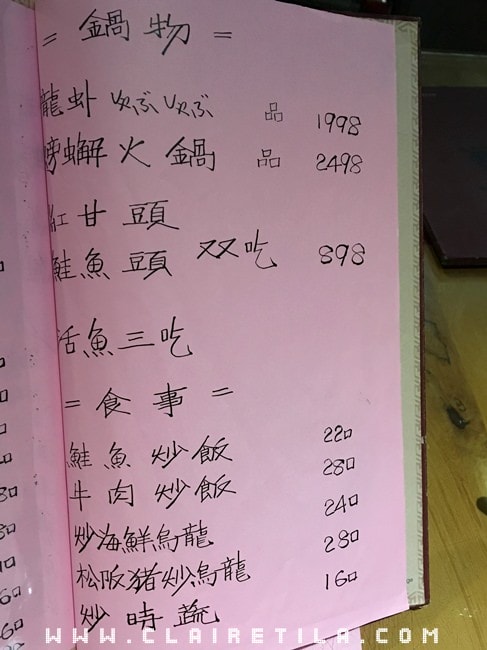 = 鍋物 =
龍虾 しゃぶしゃぶ 品 1998
螃蠏火鍋 品 2498
紅甘頭
鮭魚頭 双吃 898
活魚三吃
= 食事 =
鮭魚炒飯 220
牛肉炒飯 280
炒海鮮烏龍 240
松阪猪炒烏龍 280
炒時蔬 160
WWW.CLAIRETILA.COM